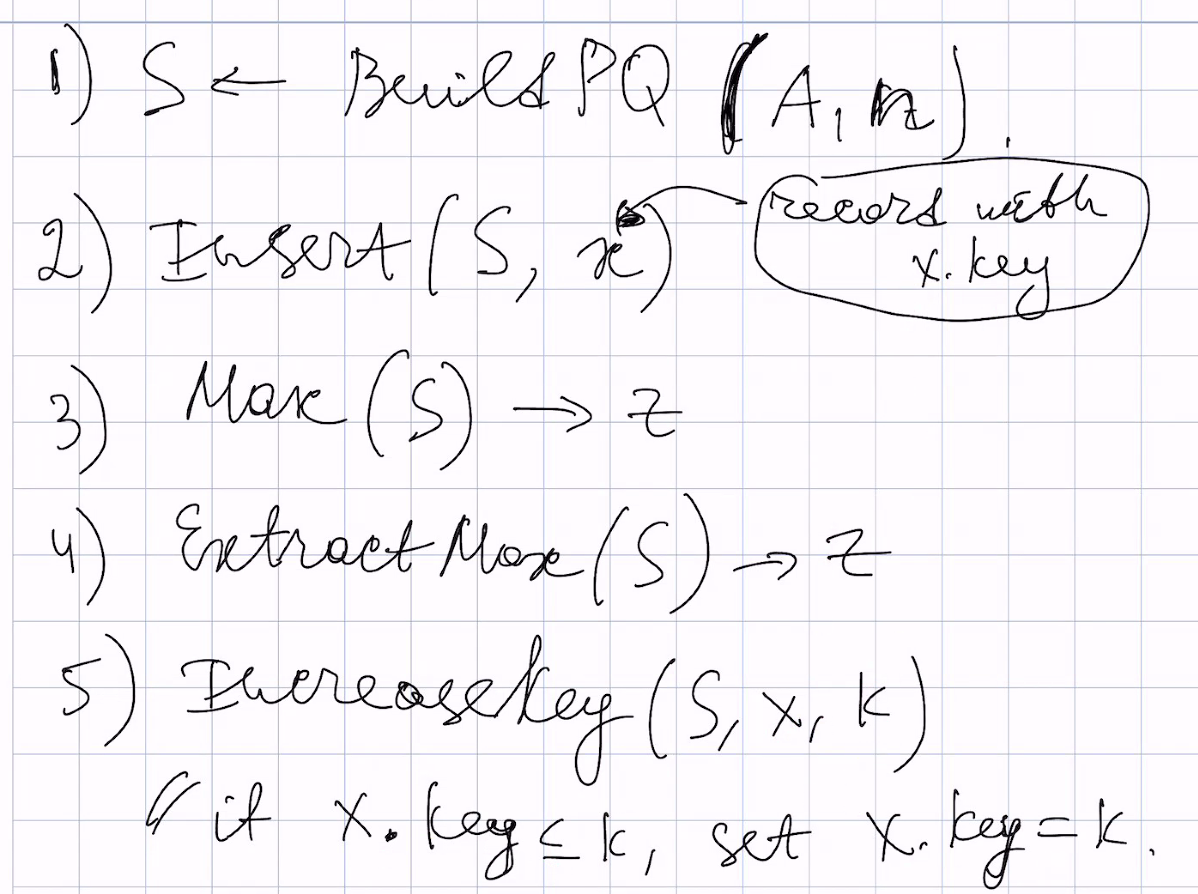 1) S ← BuildPQ (A, n).
2) Insert (S, x)
record with
x.key
3) Max (S) → z
4) ExtractMax (S) → z
5) IncreaseKey (S, x, k)
// if x.key ≤ k, set x.key = k.